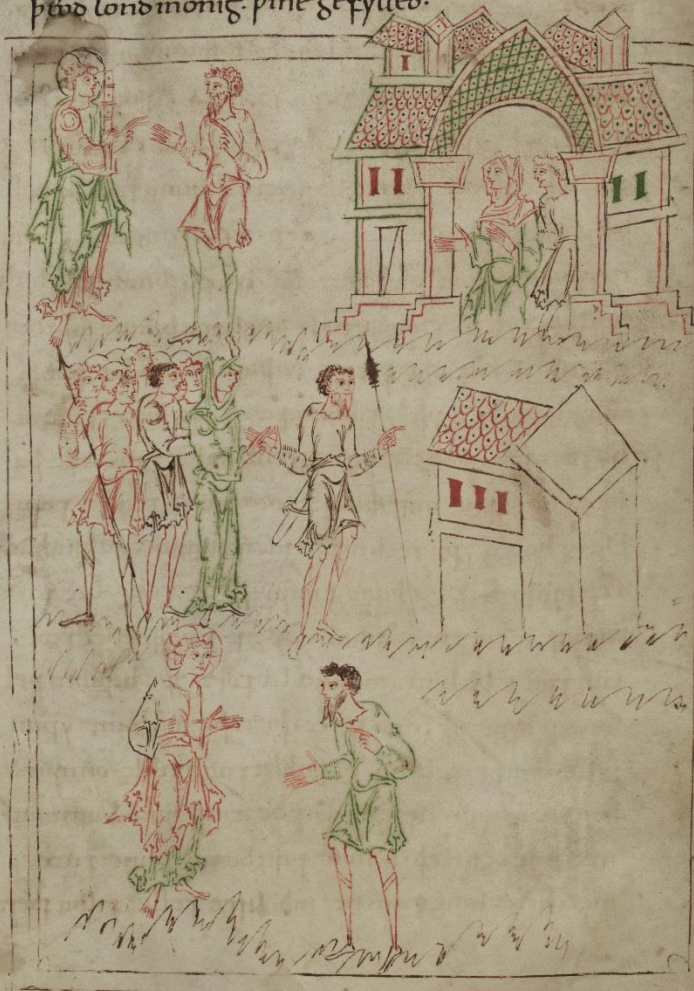 þeod lond monig. þine gefylled.